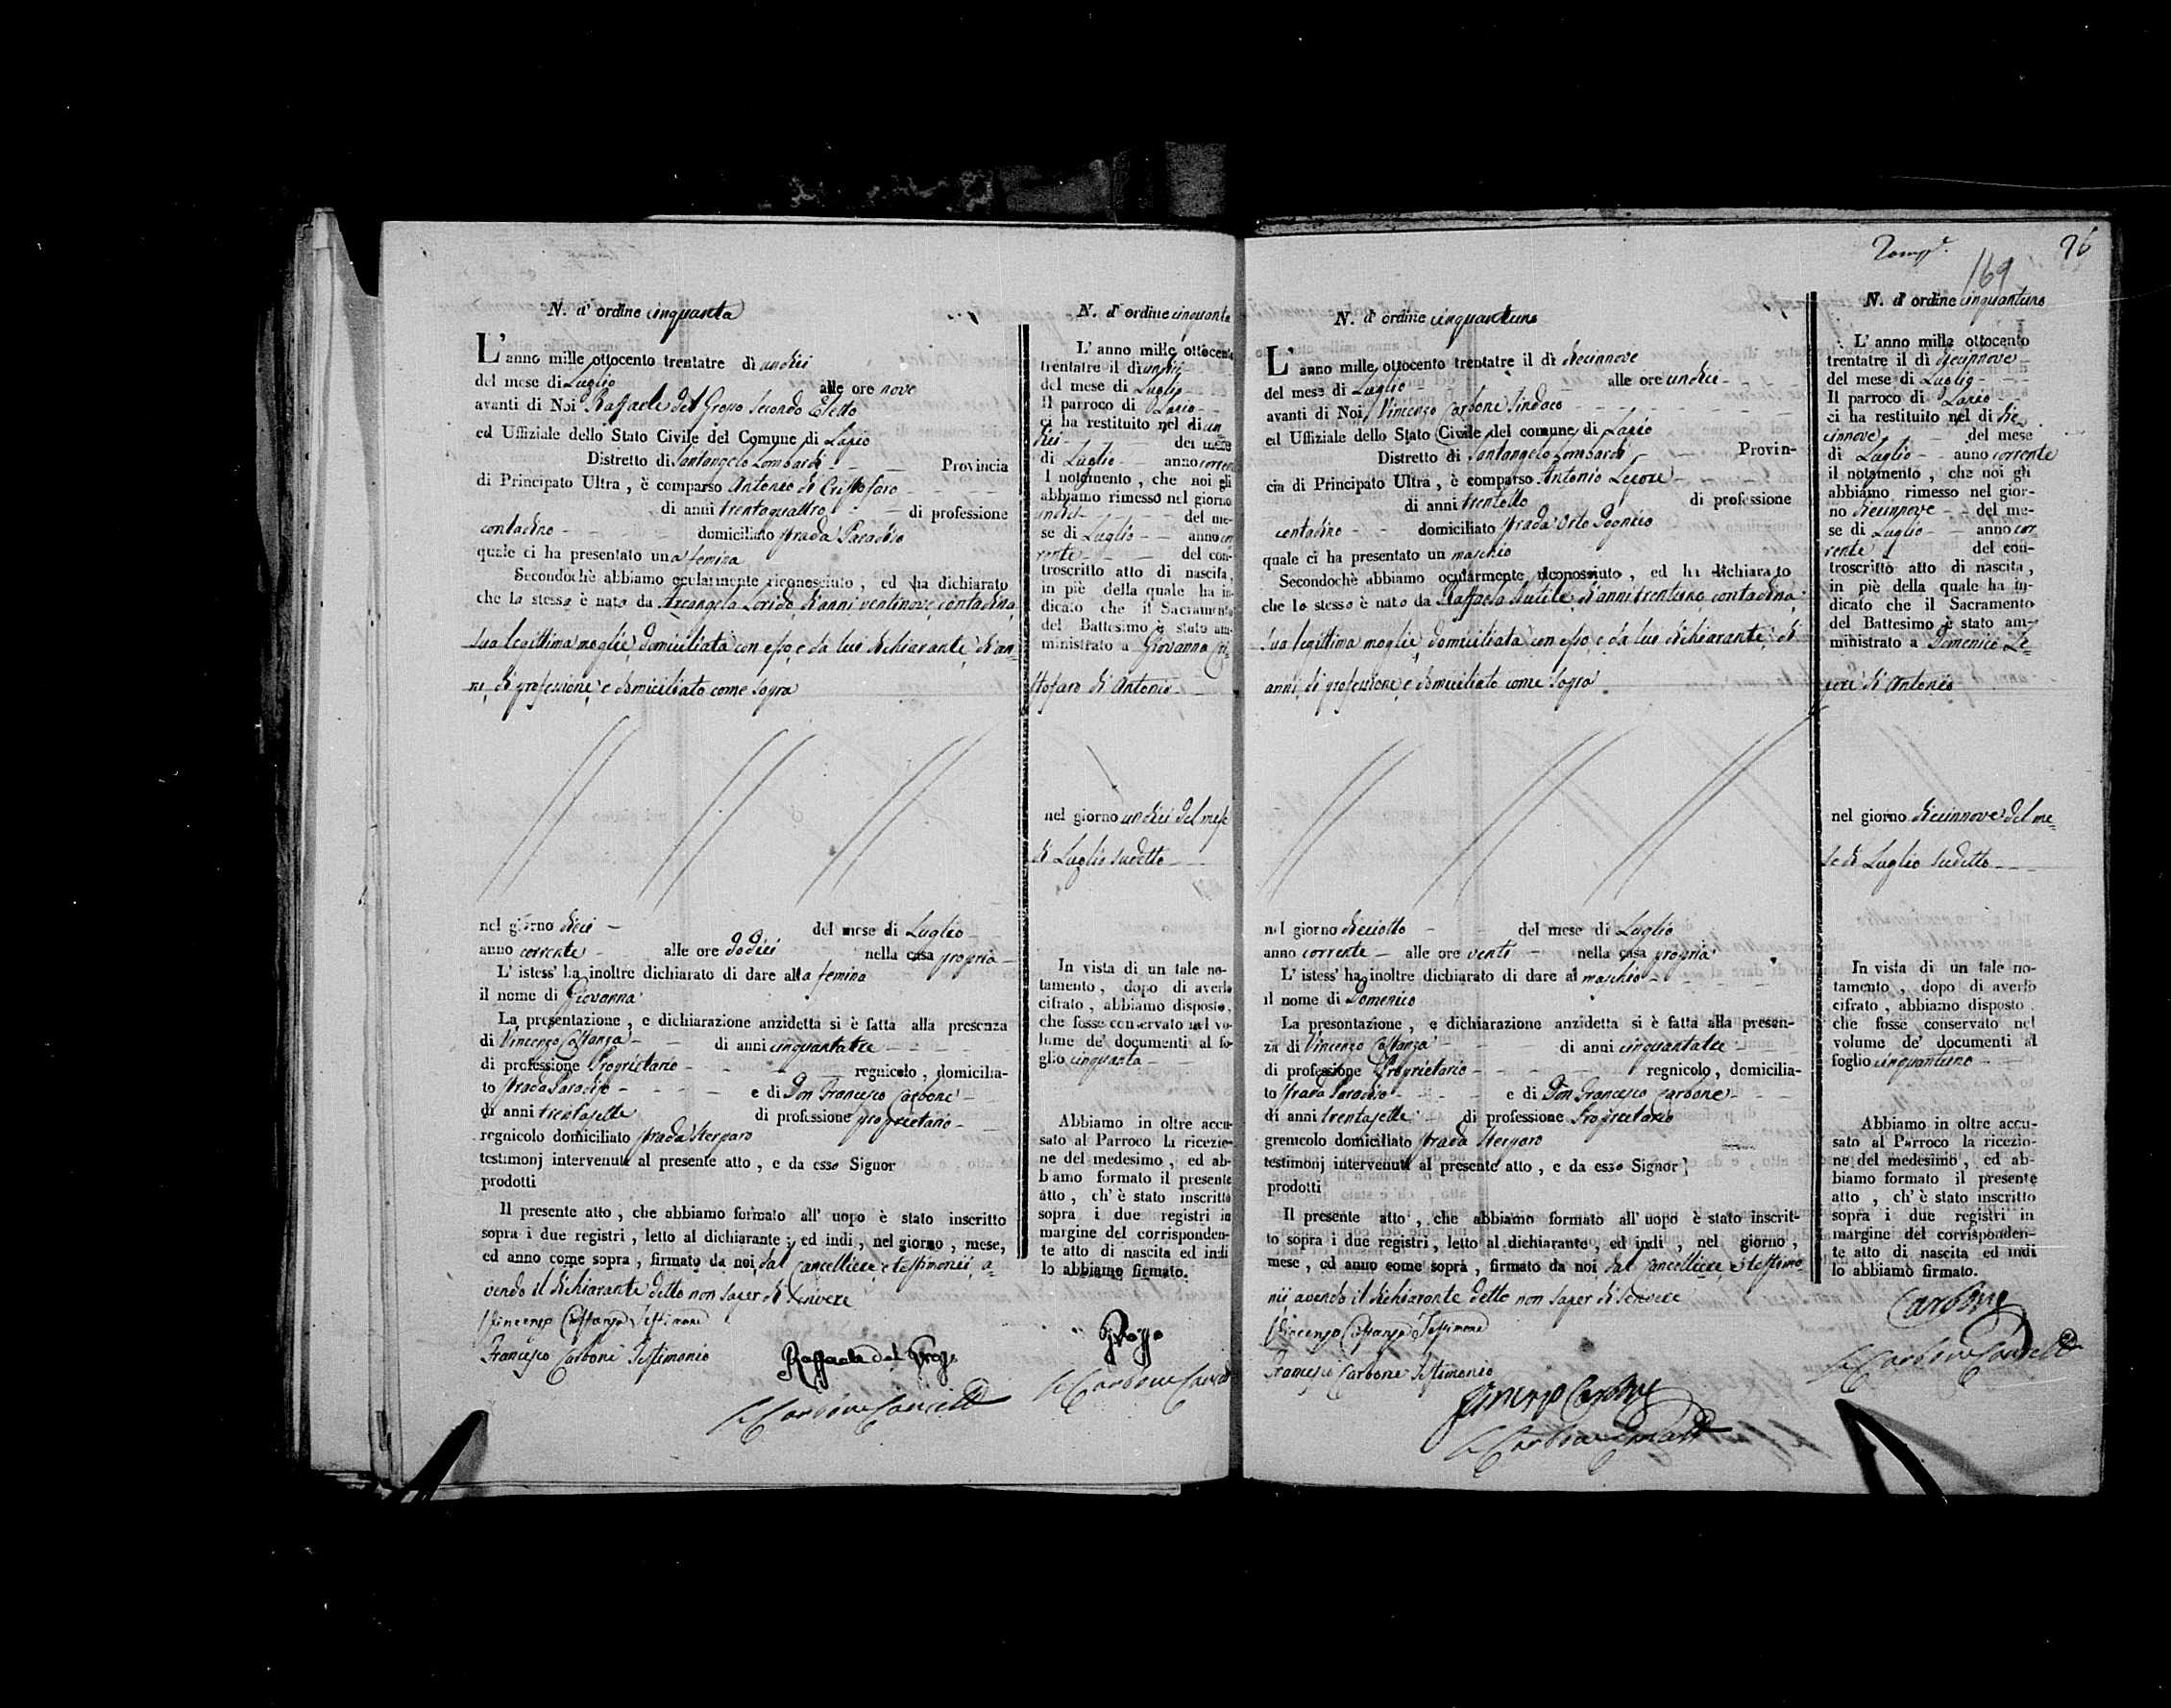 N. d' ordine cinquanta
L' anno mille ottocento trentatre dì undici
del mese di Luglio alle ore nove
avanti di Noi Raffaele del Grosso Secondo Eletto
ed Uffiziale dello Stato Civile del Comune di Lapio
Distretto di Santangelo Lombardi Provincia
di Principato Ultra , è comparso Antonio di Cristofaro
di anni trentaquattro di professione
contadino domiciliato strada Paradiso
quale ci ha presentato una femina
Secondochè abbiamo ocularmente riconosciuto , ed ha dichiarato
che la stessa è nata da Arcangela Lorido di anni ventinove contadina
sua legittima moglie domiciliata con esso e da lui dichiarante di an=
ni, di professione e domiciliato come sopra
nel giorno dieci del mese di Luglio
anno corrente alle ore dodici nella casa propria
L' istess' ha inoltre dichiarato di dare alla femina
il nome di Giovanna
La presentazione , e dichiarazione anzidetta si è fatta alla presenza
di Vincenzo Costanza di anni cinquantatre
di professione Proprietario regnicolo , domicilia-
to strada Paradiso e di Don Francesco Carbone
di anni trentasette di professione proprietario
regnicolo domiciliato strada Sterparo
testimonj intervenuti al presente atto , e da esso Signor
prodotti
Il presente atto , che abbiamo formato all' uopo è stato inscritto
sopra i due registri , letto al dichiarante ; ed indi , nel giorno , mese,
ed anno come sopra , firmato da noi dal Cancelliere e testimonii a=
vendo il dichiarante detto non saper di scrivere
Vincenzo Costanza Testimone
Francesco Carbone Testimonio
Raffaele del Grosso
Carbone Cancell
N. d' ordine cinquanta
L' anno mille ottocento
trentatre il dì undici
del mese di Luglio
Il parroco di Lapio
ci ha restituito nel dì un=
dici del mese
di Luglio anno corrente
l notamento , che noi gli
abbiamo rimesso nel giorno
undici del me-
se di Luglio anno cor
rente del con-
troscritto atto di nascita,
in piè della quale ha in-
dicato che il Sacramento
del Battesimo è stato am-
ministrato a Giovanna Cri=
stofaro di Antonio
nel giorno undici del mese
di Luglio sudetto
In vista di un tale no-
tamento , dopo di averlo
cifrato , abbiamo disposto,
che fosse conservato nel vo-
lume de' documenti al fo-
glio cinquanta
Abbiamo in oltre accu-
sato al Parroco la ricezio-
ne del medesimo , ed ab-
biamo formato il presente
atto , ch' è stato inscritto
sopra i due registri in
margine del corrisponden-
te atto di nascita ed indi
lo abbiamo firmato.
Grosso
Carbone Canc
96
169
N. d' ordine cinquantuno
L' anno mille ottocento trentatre il dì diecinnove
del mese di Luglio alle ore undici
avanti di Noi Vincenzo Carbone Sindaco
ed Uffiziale dello Stato Civile del comune di Lapio
Distretto di Santangelo Lombardi Provin-
cia di Principato Ultra , è comparso Antonio Lepore
di anni trentotto di professione
contadino domiciliato strada Orto
quale ci ha presentato un maschio
Secondochè abbiamo ocularmente riconosciuto , ed ha dichiarato
che lo stesso è nato da Raffaela di anni trentuno contadina
sua legittima moglie domiciliata con esso e da lui dichiarante di
anni, di professione e domiciliato come sopra
nel giorno dieciotto del mese di Luglio
anno corrente alle ore venti nella casa propria
L' istess' ha inoltre dichiarato di dare al maschio
il nome di Domenico
La presontazione , e dichiarazione anzidetta si è fatta alla presen-
za di Vincenzo Costanza di anni cinquantatre
di professione Proprietario regnicolo , domicilia-
to strada Paradiso e di Don Francesco Carbone
di anni trentasette di professione Proprietario
grenicolo domiciliato strada Sterparo
testimonj intervenuti al presente atto , e da esso Signor
prodotti
Il presente atto , che abbiamo formato all' uopo è stato inscrit-
to sopra i due registri , letto al dichiarante , ed indi , nel giorno ,
mese , ed anno come sopra , firmato da noi dal Cancelliere e testimo=
nii avendo il dichiarante detto non saper di scrivere
Vincenzo Costanza Testimone
Francesco Carbone Testimonio
Vincenzo Carbone
Carbone Cancell
N. d' ordine cinquantuno
L' anno mille ottocento
trentatre il dì diecinnove
del mese di Luglio
Il parroco di Lapio
ci ha restituito nel dì die=
cinnove del mese
di Luglio anno corrente
il notamento , che noi gli
abbiamo rimesso nel gior-
no diecinnove del me-
se di Luglio anno cor=
rente del con-
troscritto atto di nascita ,
in piè della quale ha in-
dicato che il Sacramento
del Battesimo è stato am-
ministrato a Domenico Le=
pore di Antonio
nel giorno diecinnove del me=
se di Luglio sudetto
In vista di un tale no-
tamento , dopo di averlo
cifrato , abbiamo disposto
che fosse conservato nel
volume de' documenti al
foglio cinquantuno
Abbiamo in oltre accu-
sato al Parroco la ricezio-
ne del medesimo , ed ab-
biamo formato il presente
atto , ch' è stato inscritto
sopra i due registri in
margine del corrisponden-
te atto di nascita ed indi
lo abbiamo firmato.
Carbone
Carbone Cancell